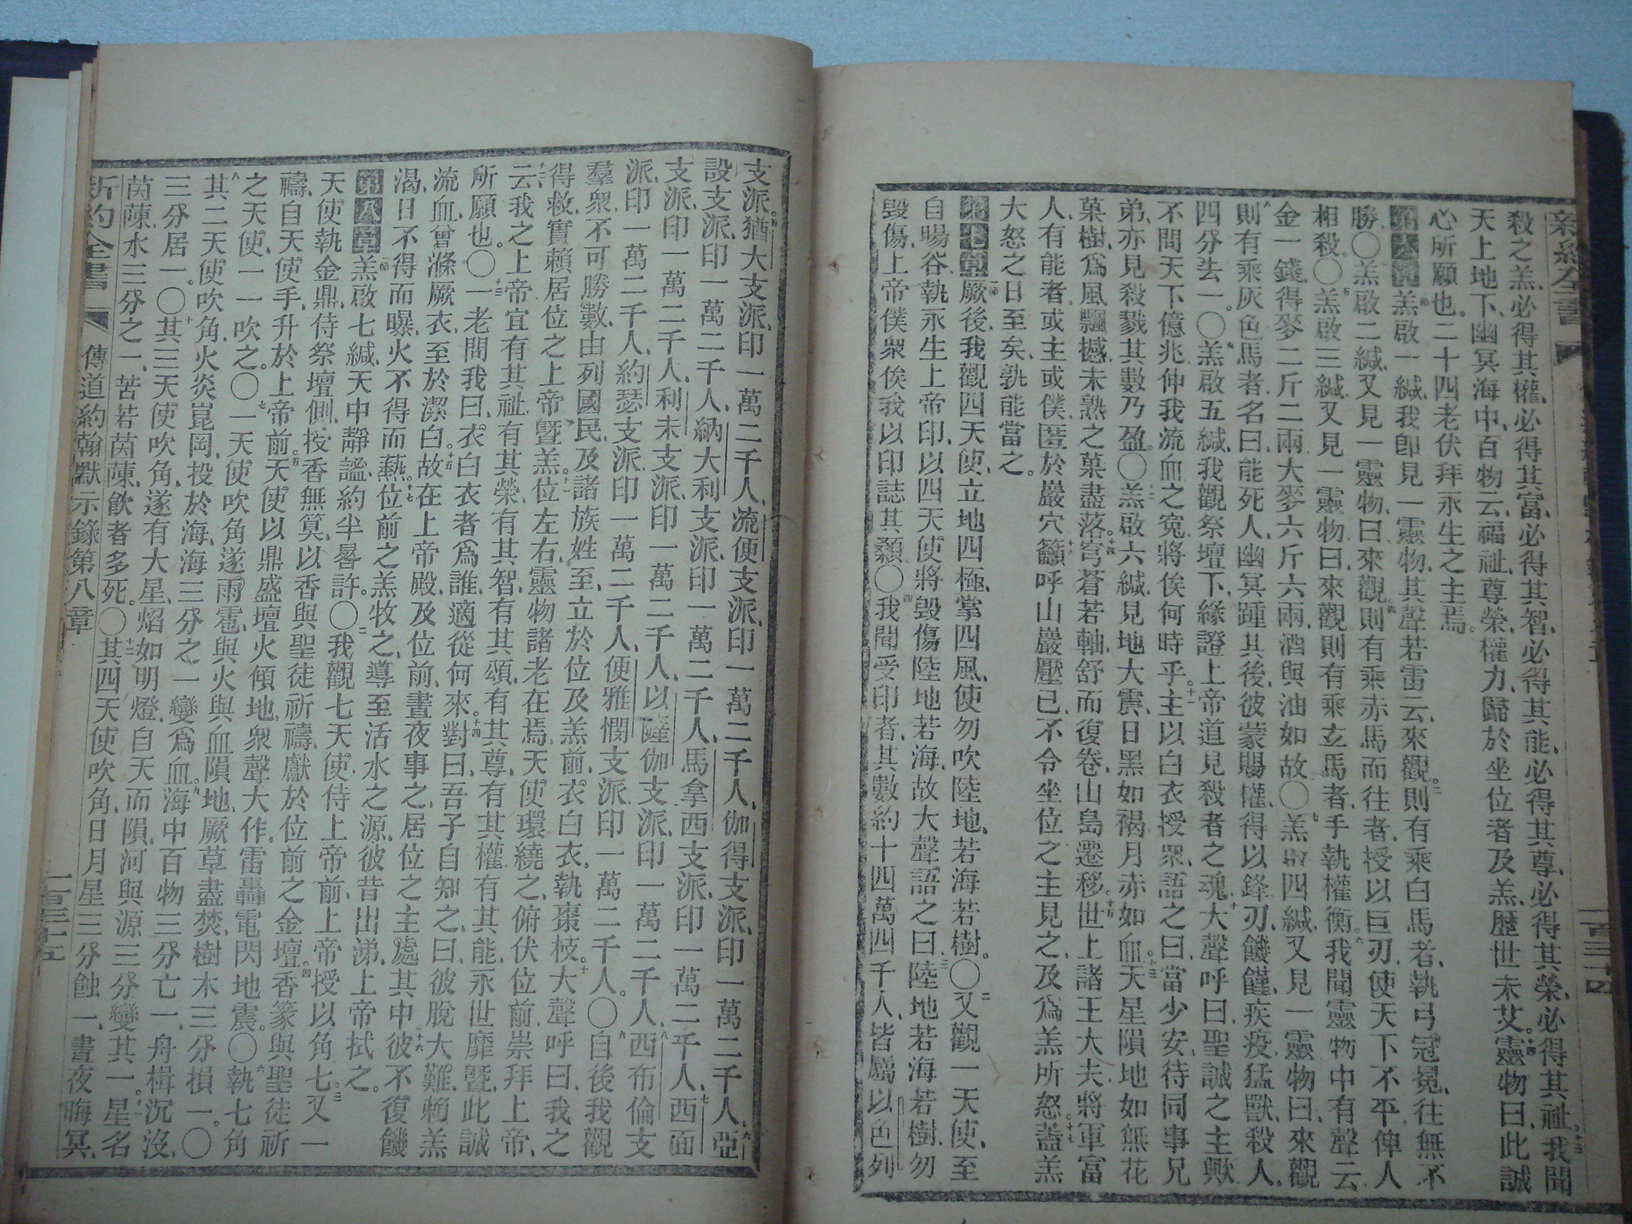 新約全書
一百三十四
殺之羔必得其權必得其富必得其智必得其能必得其尊必得其榮必得其祉我聞
天上地下幽冥海中百物云福祉尊榮權力歸於坐位者及羔歷世未艾靈物曰此誠
心所願也二十四老伏拜永生之主焉
第六章羔啟一緘我卽見一靈物其聲若雷云來觀則有乘白馬者執弓冠冕往無不
勝〇羔啟二緘又見一靈物曰來觀則有乘赤馬而往者授以巨刃使天下不平俾人
相殺〇羔啟三緘又見一靈物曰來觀則有乘玄馬者手執權衡我聞靈物中有聲云
金一錢得麥二斤二兩大麥六斤六兩酒與油如故〇羔啟四緘又見一靈物曰來觀
則有乘灰色馬者名曰能死人幽冥踵其後彼蒙賜權得以鋒刃饑饉疾疫猛獸殺人
四分去一〇羔啟五緘我觀祭壇下緣證上帝道見殺者之魂大聲呼曰聖誠之主歟
不問天下億兆伸我流血之冤將俟何時乎主以白衣授眾語之曰當少安待同事兄
弟亦見殺戮其數乃盈〇羔啟六緘見地大震日黑如褐月赤如血天星隕地如無花
菓樹爲風飄撼未熟之菓盡落穹蒼若軸舒而復卷山島遷移世上諸王大夫將軍富
人有能者或主或僕匿於巖穴籲呼山巖壓已不令坐位之主見之及爲羔所怒蓋羔
大怒之日至矣孰能當之
第七章厥後我觀四天使立地四極掌四風使勿吹陸地若海若樹〇又觀一天使至
自暘谷執永生上帝印以四天使將毀傷陸地若海故大聲語之曰陸地若海若樹勿
毀傷上帝僕眾俟我以印誌其顙〇我聞受印者其數約十四萬四千人皆屬以色列
支派猶大支派印一萬二千人流便支派印一萬二千人伽得支派印一萬二千人亞
設支派印一萬二千人納大利支派印一萬二千人馬拿西支派印一萬二千人西面
支派印一萬二千人利未支派印一萬二千人以薩伽支派印一萬二千人西布倫支
派印一萬二千人約瑟支派印一萬二千人便雅憫支派印一萬二千人〇自後我觀
羣衆不可勝數由列國民及諸族姓至立於位及羔前衣白衣執棗枝大聲呼曰我之
得救實賴居位之上帝暨羔位左右靈物諸老在焉天使環繞之俯伏位前崇拜上帝
云我之上帝宜有其祉有其榮有其智有其頌有其尊有其權有其能永世靡暨此誠
所願也〇一老問我曰衣白衣者爲誰適從何來對曰吾子自知之曰彼脫大難賴羔
流血曾滌厥衣至於潔白故在上帝殿及位前晝夜事之居位之主處其中彼不復饑
渴日不得而曝火不得而爇位前之羔牧之導至活水之源彼昔出涕上帝拭之
第八章羔啟七緘天中靜謐約半晷許〇我觀七天使侍上帝前上帝授以角七又一
天使執金鼎侍祭壇側授香無算以香與聖徒祈禱獻於位前之金壇香篆與聖徒祈
禱自天使手升於上帝前天使以鼎盛壇火傾地衆聲大作雷轟電閃地震〇執七角
之天使一一吹之〇一天使吹角遂雨雹與火與血隕地厥草盡焚樹木三分損一〇
其二天使吹角火炎崑岡投於海海三分之一變爲血海中百物三分亡一舟楫沉沒
三分居一〇其三天使吹角遂有大星熖如明燈自天而隕河與源三分變其一星名
茵蔯水三分之一苦若茵蔯飲者多死〇其四天使吹角日月星三分蝕一晝夜晦冥
新約全書
傳道約翰默示錄第八章
一百三十五